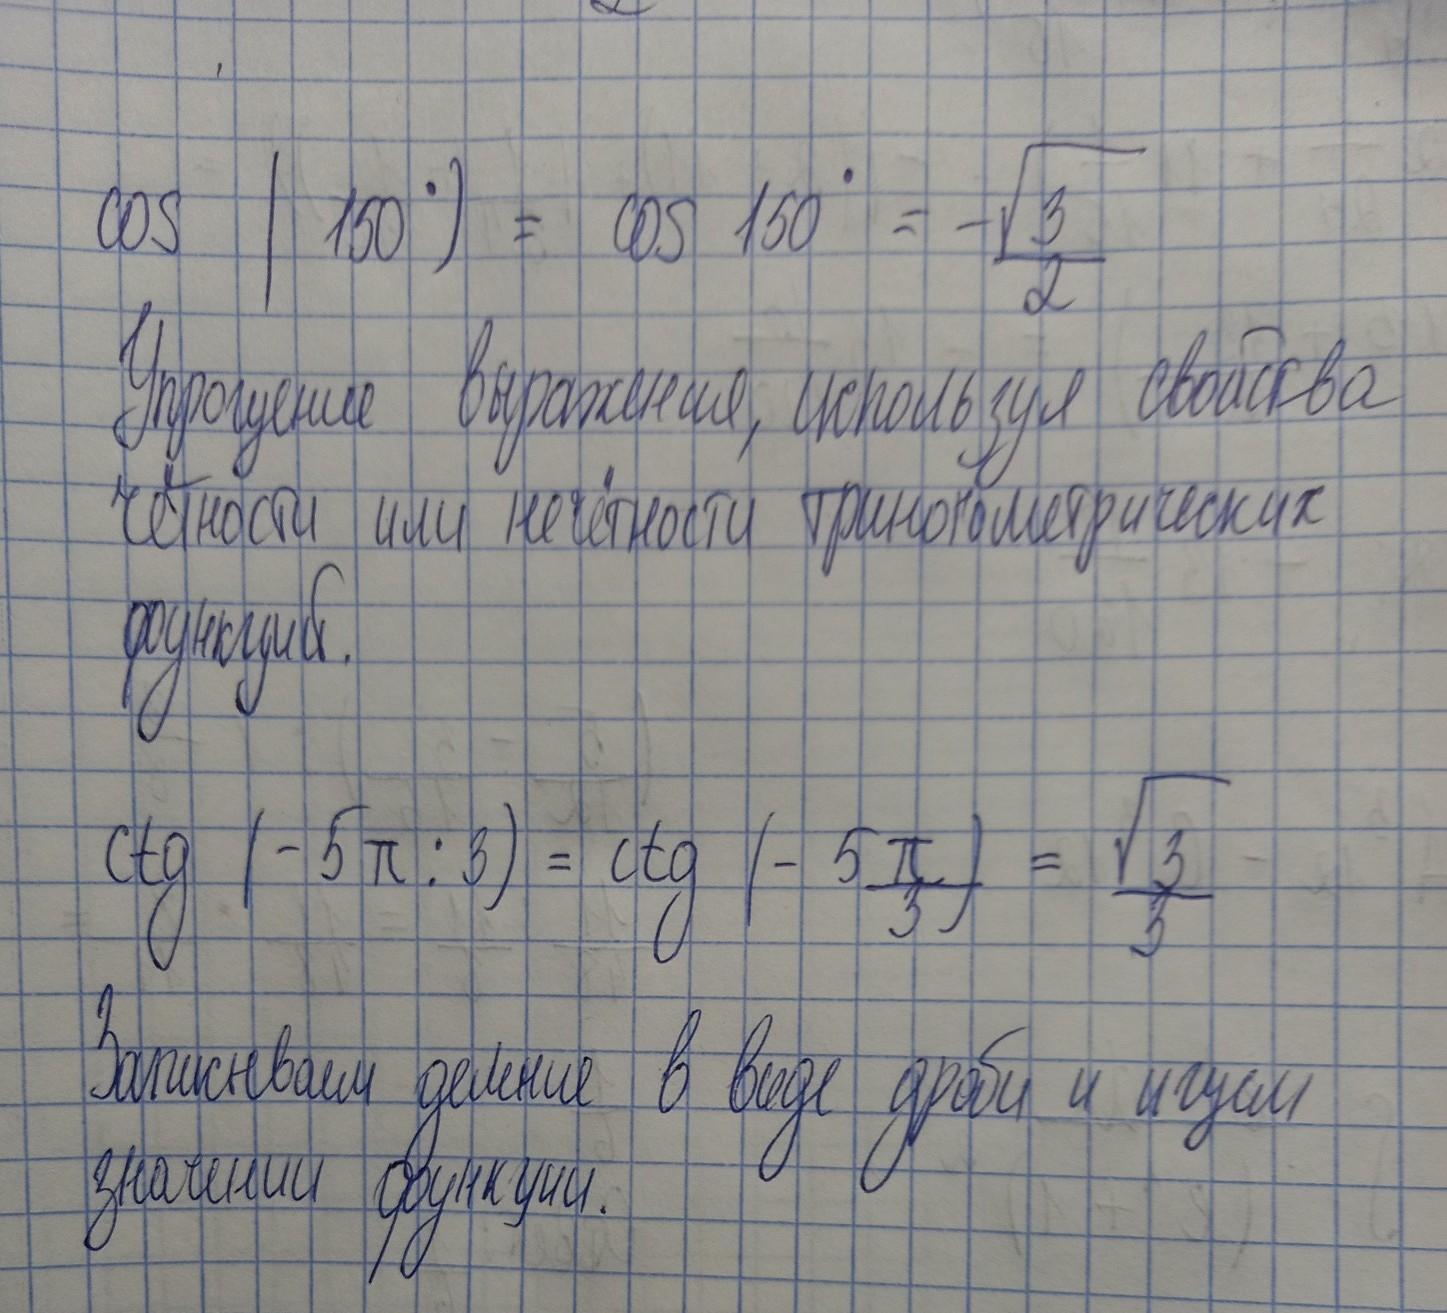 cos (150°) = cos 150° = -√3/2
Упрощение выражения, используя свойства
чётности или нечётности тригонометрических
функций.
ctg (-5π:3) = ctg (-5π/3) = √3/3
Записываем деление в виде дроби и ищем
значении функции.